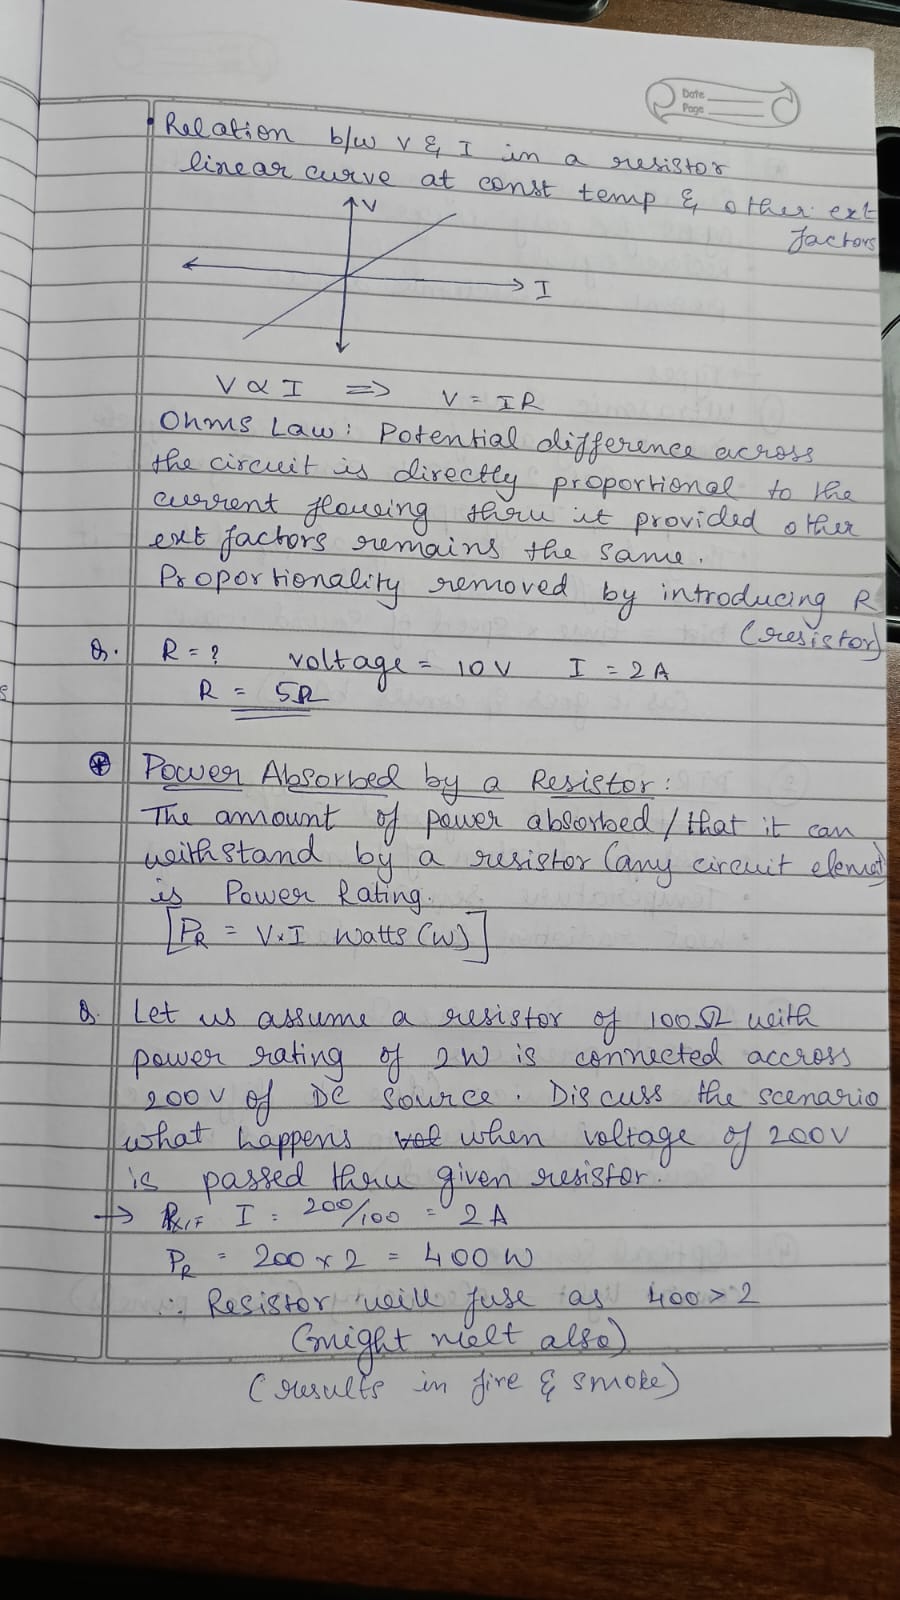 Date
Page
• Relation b/w V & I in a resistor
linear curve at const temp & other ext
factors
V
I
V ∝ I => V = IR
Ohms Law: Potential difference across
the circuit is directly proportional to the
current flowing thru it provided other
ext factors remains the same.
Proportionality removed by introducing R
(resistor)
Q. R = ? voltage = 10V I = 2A
R = 5Ω
* Power Absorbed by a Resistor:
The amount of power absorbed / that it can
withstand by a resistor (any circuit elemet)
is Power Rating.
[PR = V×I Watts (W)]
Q. Let us assume a resistor of 100Ω with
power rating of 2W is connected accross
200V of DC source. Discuss the scenario
what happens when voltage of 200V
is passed thru given resistor.
→ I = 200/100 = 2A
PR = 200 × 2 = 400W
∴ Resistor will fuse as 400 > 2
(might melt also)
(results in fire & smoke)